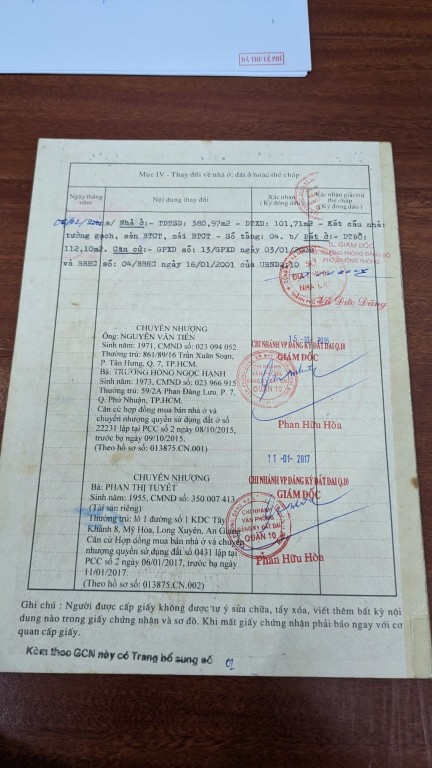 ĐÃ THU LỆ PHÍ
Mục IV - Thay đổi về nhà ở, đất ở hoặc thế chấp
Ngày tháng năm
Nội dung thay đổi
Xác nhận (Ký đóng dấu)
Xác nhận giải trừ thế chấp (Ký đóng dấu)
a/ Nhà ở:- TDTSD: 380,97m2 - DTXD: 101,71m2 - Kết cấu nhà:
tường gạch, sàn BTCT, mái BTCT - Số tầng: 04. b/ Đất ở:- DTĐỘ:
112,10m2. Căn cứ:- GPXD số: 13/GPXD ngày 03/01/2000
và BBHC số: 04/BBHC ngày 16/01/2001 của UBNDQ.10
TL GIÁM ĐỐC
PHÓ TRƯỞNG PHÒNG
Lê Đức Dũng
CHUYỂN NHƯỢNG
Ông: NGUYỄN VĂN TIÊN
Sinh năm: 1971, CMND số: 023 094 052
Thường trú: 861/89/16 Trần Xuân Soạn,
P. Tân Hưng, Q. 7, TP.HCM.
Bà: TRƯƠNG HỒNG NGỌC HẠNH
Sinh năm: 1973, CMND số: 023 966 915
Thường trú: 59/2A Phan Đăng Lưu, P. 7,
Q. Phú Nhuận, TP.HCM.
Căn cứ hợp đồng mua bán nhà ở và
chuyển nhượng quyền sử dụng đất ở số
22231 lập tại PCC số 2 ngày 08/10/2015,
trước bạ ngày 09/10/2015.
(Theo hồ sơ số: 013875.CN.001)
15-10-2015
CHI NHÁNH VP ĐĂNG KÝ ĐẤT ĐAI Q.10
GIÁM ĐỐC
CHI NHÁNH
VĂN PHÒNG
ĐĂNG KÝ ĐẤT ĐAI
QUẬN 10
Phan Hữu Hòa
11-01-2017
CHUYỂN NHƯỢNG
Bà: PHAN THỊ TUYẾT
Sinh năm: 1955, CMND số: 350 007 413
(Tài sản riêng)
Thường trú: lô 1 đường số 1 KDC Tây
Khánh 8, Mỹ Hòa, Long Xuyên, An Giang
Căn cứ Hợp đồng mua bán nhà ở và chuyển
nhượng quyền sử dụng đất số 0431 lập tại
PCC số 2 ngày 06/01/2017, trước bạ ngày
11/01/2017.
(Theo hồ sơ số: 013875.CN.002)
CHI NHÁNH VP ĐĂNG KÝ ĐẤT ĐAI Q.10
GIÁM ĐỐC
CHI NHÁNH
VĂN PHÒNG
ĐĂNG KÝ ĐẤT ĐAI
QUẬN 10
Phan Hữu Hòa
Ghi chú : Người được cấp giấy không được tự ý sửa chữa, tẩy xóa, viết thêm bất kỳ nội
dung nào trong giấy chứng nhận và sơ đồ. Khi mất giấy chứng nhận phải báo ngay với cơ
quan cấp giấy.
Kèm theo GCN này có Trang bổ sung số 01